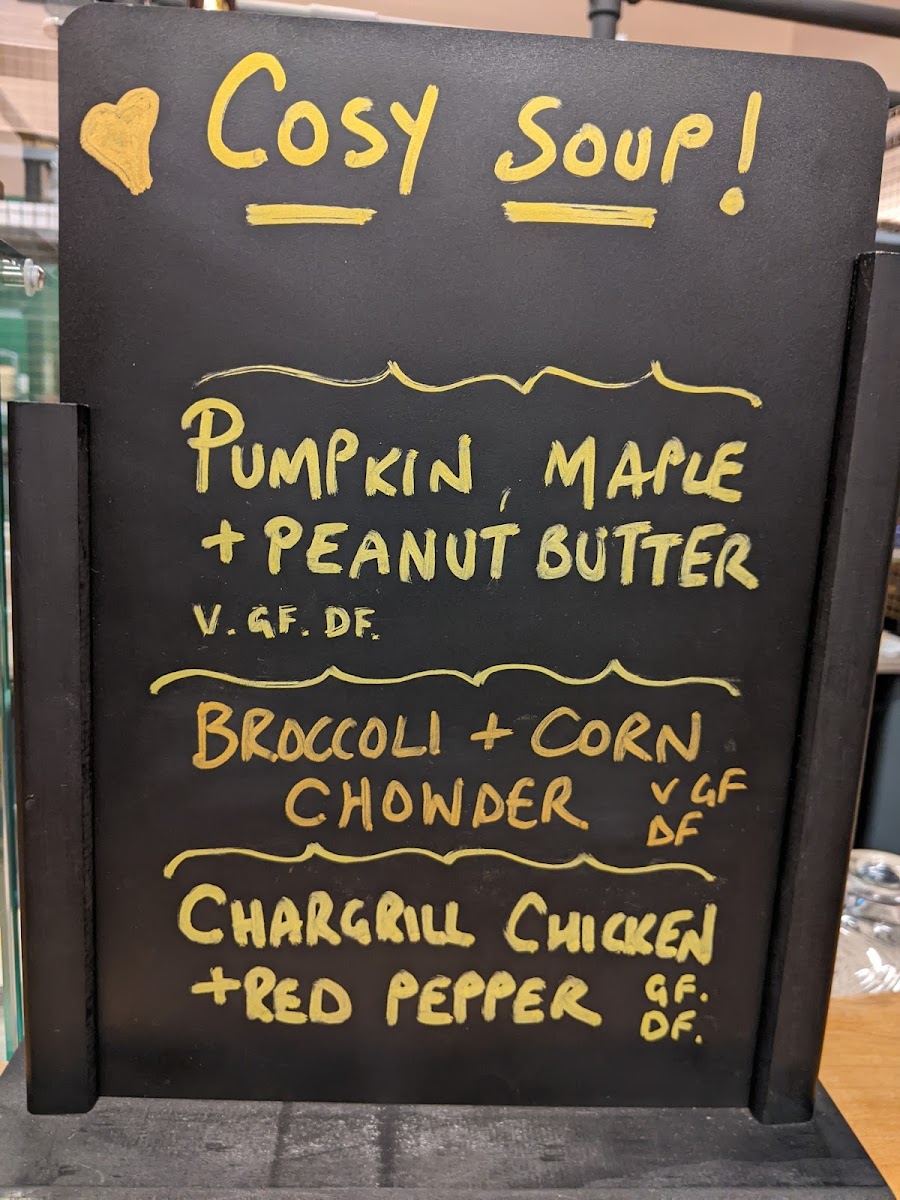 COSY SOUP!
PUMPKIN, MAPLE
+ PEANUT BUTTER
V. GF. DF.
BROCCOLI + CORN
CHOWDER
V GF
DF
CHARGRILL CHICKEN
+ RED PEPPER
GF.
DF.